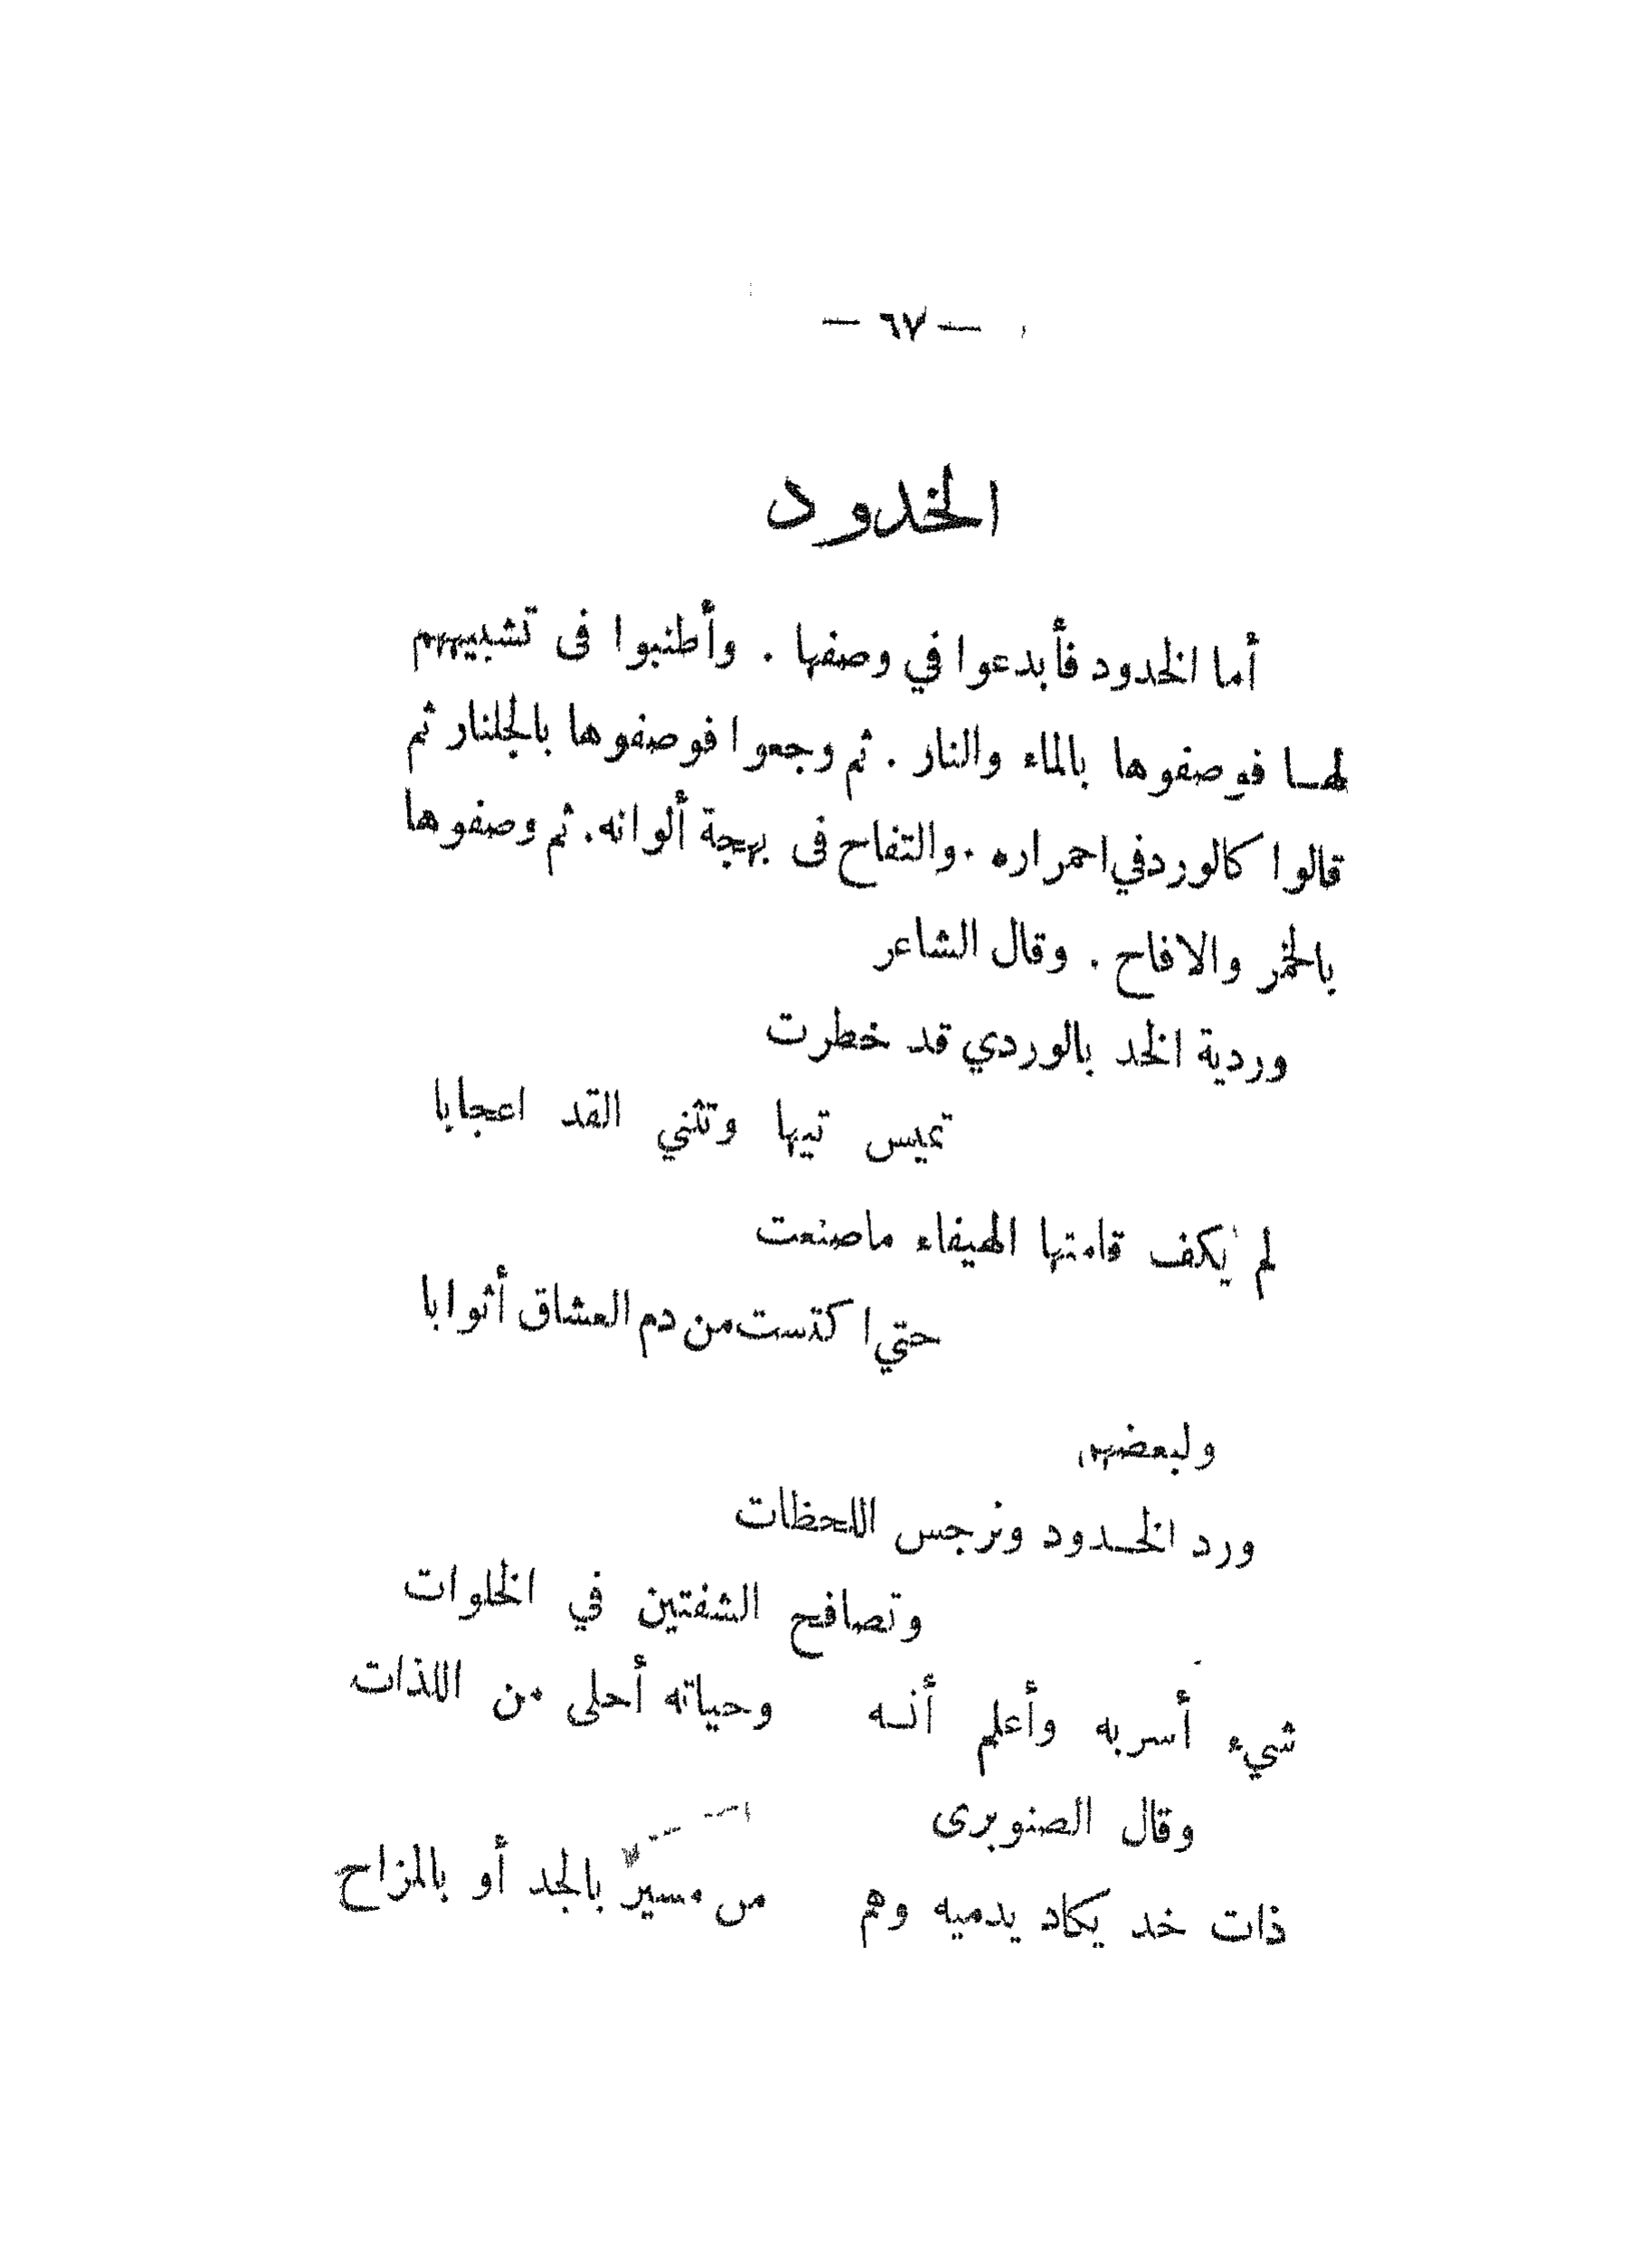 — ٦٧ —
الخدود
أما الخدود فأبدعوا في وصفها . وأطنبوا فى تشبيههم
لهـا فوصفوها بالماء والنار . ثم وجعوا فوصفوها بالجلنار ثم
قالوا كالورد في احمراره . والتفاح فى بهجة ألوانه . ثم وصفوها
بالخمر والافاح . وقال الشاعر
وردية الخد بالوردي قد خطرت
تميس تيها وتثني القد اعجابا
لم يكف قامتها الهيفاء ماصنعت
حتي اكتست من دم العشاق أثوابا
ولبعضهم
ورد الخـدود ونرجس اللحظات
وتصافح الشفتين في الخلوات
شيء أسر به وأعلم أنـه وحياته أحلى من اللذات
وقال الصنوبرى
ذات خد يكاد يدميه وهم من مسير بالجد أو بالمزاح